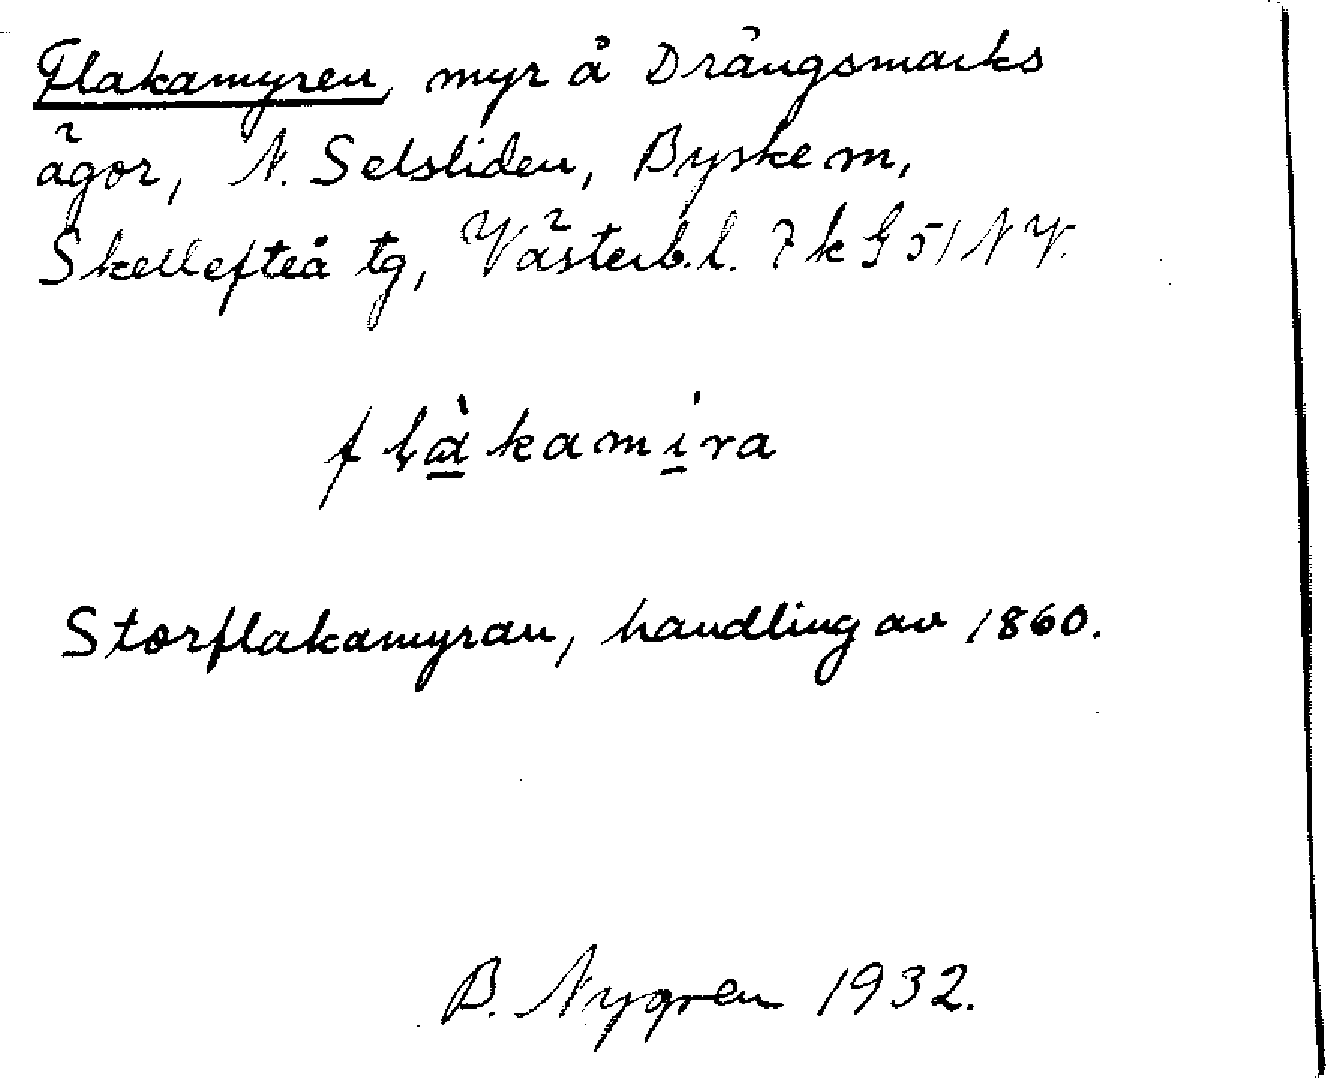 Flakamyren, myr å Drängsmarks
ägor, N. Selsliden, Byske sn,
Skellefteå tg, Västerb.l.
flàkamíra
Storflakamyran, handling av 1860.
B. Nygren 1932.